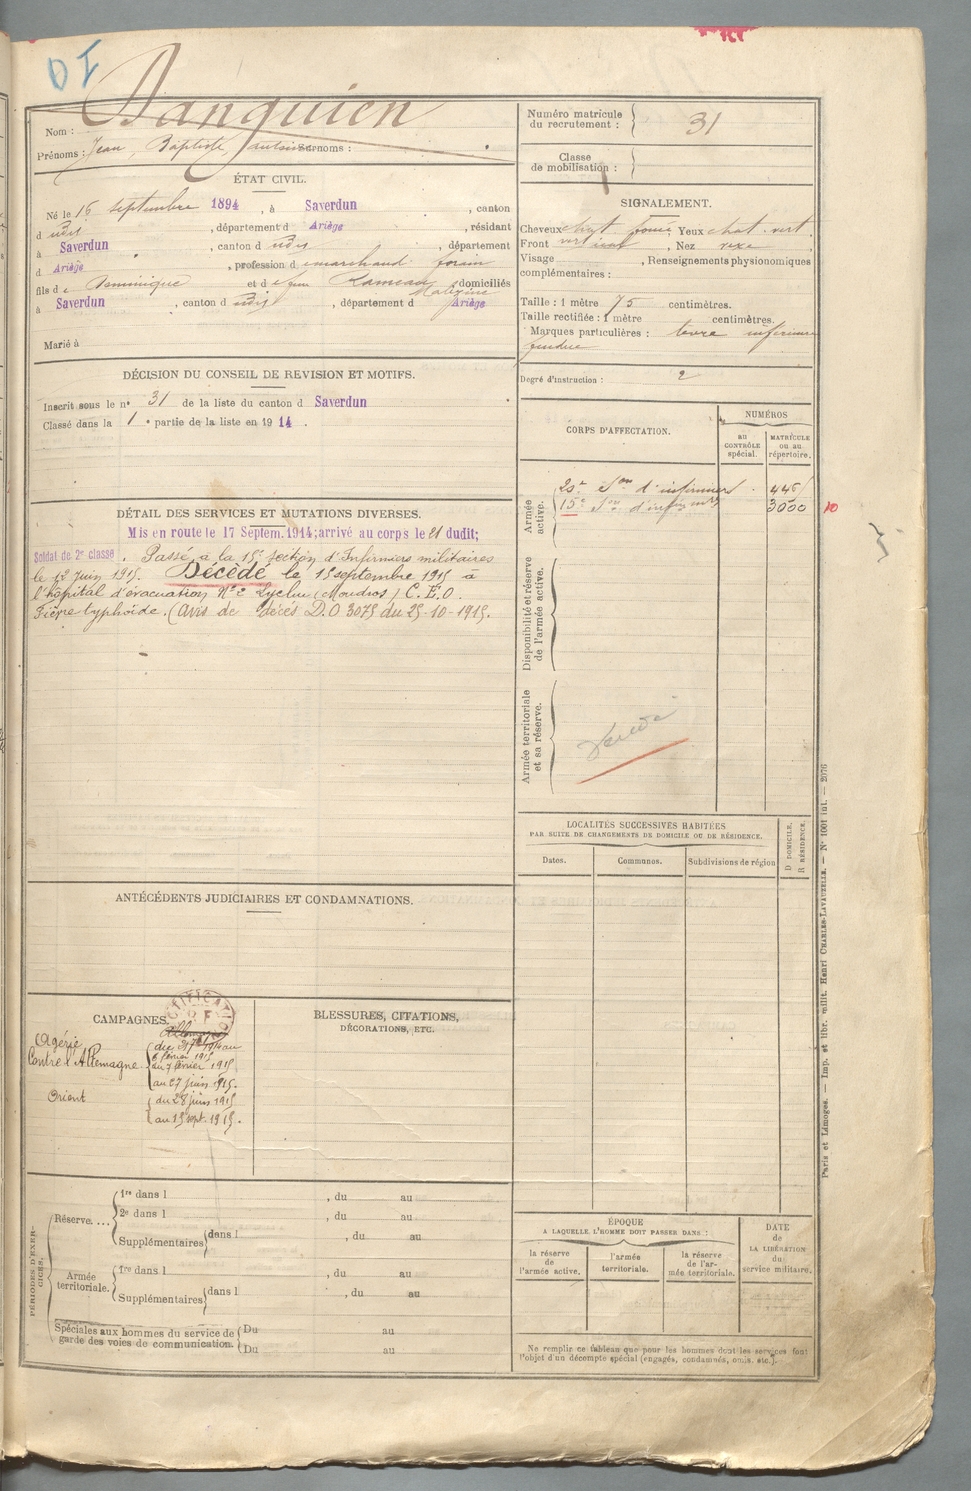 OI
Nom : Danquien
Prénoms : Jean, Baptiste, Surnoms :
Numéro matricule du recrutement : 31
Classe de mobilisation :
ÉTAT CIVIL.
Né le 16 septembre 1894, à Saverdun, canton
d udit, département d Ariège, résidant
à Saverdun, canton d udit, département
d Ariège, profession d marchand forain
fils de Dominique et d domiciliés
à Saverdun, canton d udit, département d Ariège
Marié à
SIGNALEMENT.
Cheveux chat. foncé Yeux chat. vert.
Front vertical, Nez vexe,
Visage , Renseignements physionomiques
complémentaires :
Taille : 1 mètre 75 centimètres.
Taille rectifiée : 1 mètre centimètres.
Marques particulières : levre inférieure
fendue
Degré d'instruction : 2
DÉCISION DU CONSEIL DE REVISION ET MOTIFS.
Inscrit sous le n° 31 de la liste du canton d Saverdun
Classé dans la 1e partie de la liste en 1914.
CORPS D'AFFECTATION.
NUMÉROS
au CONTRÔLE spécial.
MATRICULE ou au répertoire.
Armée active.
20e Son d'infirmiers 446
15e Son d'infirmrs 3000
10
Disponibilité et réserve de l'armée active.
Armée territoriale et sa réserve.
DÉTAIL DES SERVICES ET MUTATIONS DIVERSES.
Mis en route le 17 Septem. 1914; arrivé au corps le 21 dudit;
Soldat de 2e classe. Passé à la 15e section d'Infirmiers militaires
le 12 juin 1915. Décédé le 15 septembre 1915 à
l'hôpital d'évacuation N° 2 (Moudros) C.E.O.
Fièvre typhoïde. (Avis de décès D.O 3075 du 25-10-1915.
LOCALITÉS SUCCESSIVES HABITÉES
PAR SUITE DE CHANGEMENTS DE DOMICILE OU DE RÉSIDENCE.
Dates.
Communes.
Subdivisions de région
D DOMICILE.
R RÉSIDENCE.
ANTÉCÉDENTS JUDICIAIRES ET CONDAMNATIONS.
CAMPAGNES.
Algérie
au
6 février 1915
Contre l'Allemagne du 7 février 1915
au 27 juin 1915.
Orient du 28 juin 1915
au 15 sept. 1915.
BLESSURES, CITATIONS,
DÉCORATIONS, ETC.
PÉRIODES D'EXERCICES.
Réserve....
1re dans l , du au
2e dans l , du au
Supplémentaires dans l , du au
Armée territoriale.
1re dans l , du au
Supplémentaires dans l , du au
Spéciales aux hommes du service de garde des voies de communication.
Du au
Du au
ÉPOQUE
A LAQUELLE L'HOMME DOIT PASSER DANS :
la réserve de l'armée active.
l'armée territoriale.
la réserve de l'armée territoriale.
DATE de LA LIBÉRATION du service militaire.
Ne remplir ce tableau que pour les hommes dont les services font
l'objet d'un décompte spécial (engagés, condamnés, omis, etc.).
Paris et Limoges. — Imp. et libr. milit. Henri CHARLES-LAVAUZELLE. — N° 1001 int. — 2076